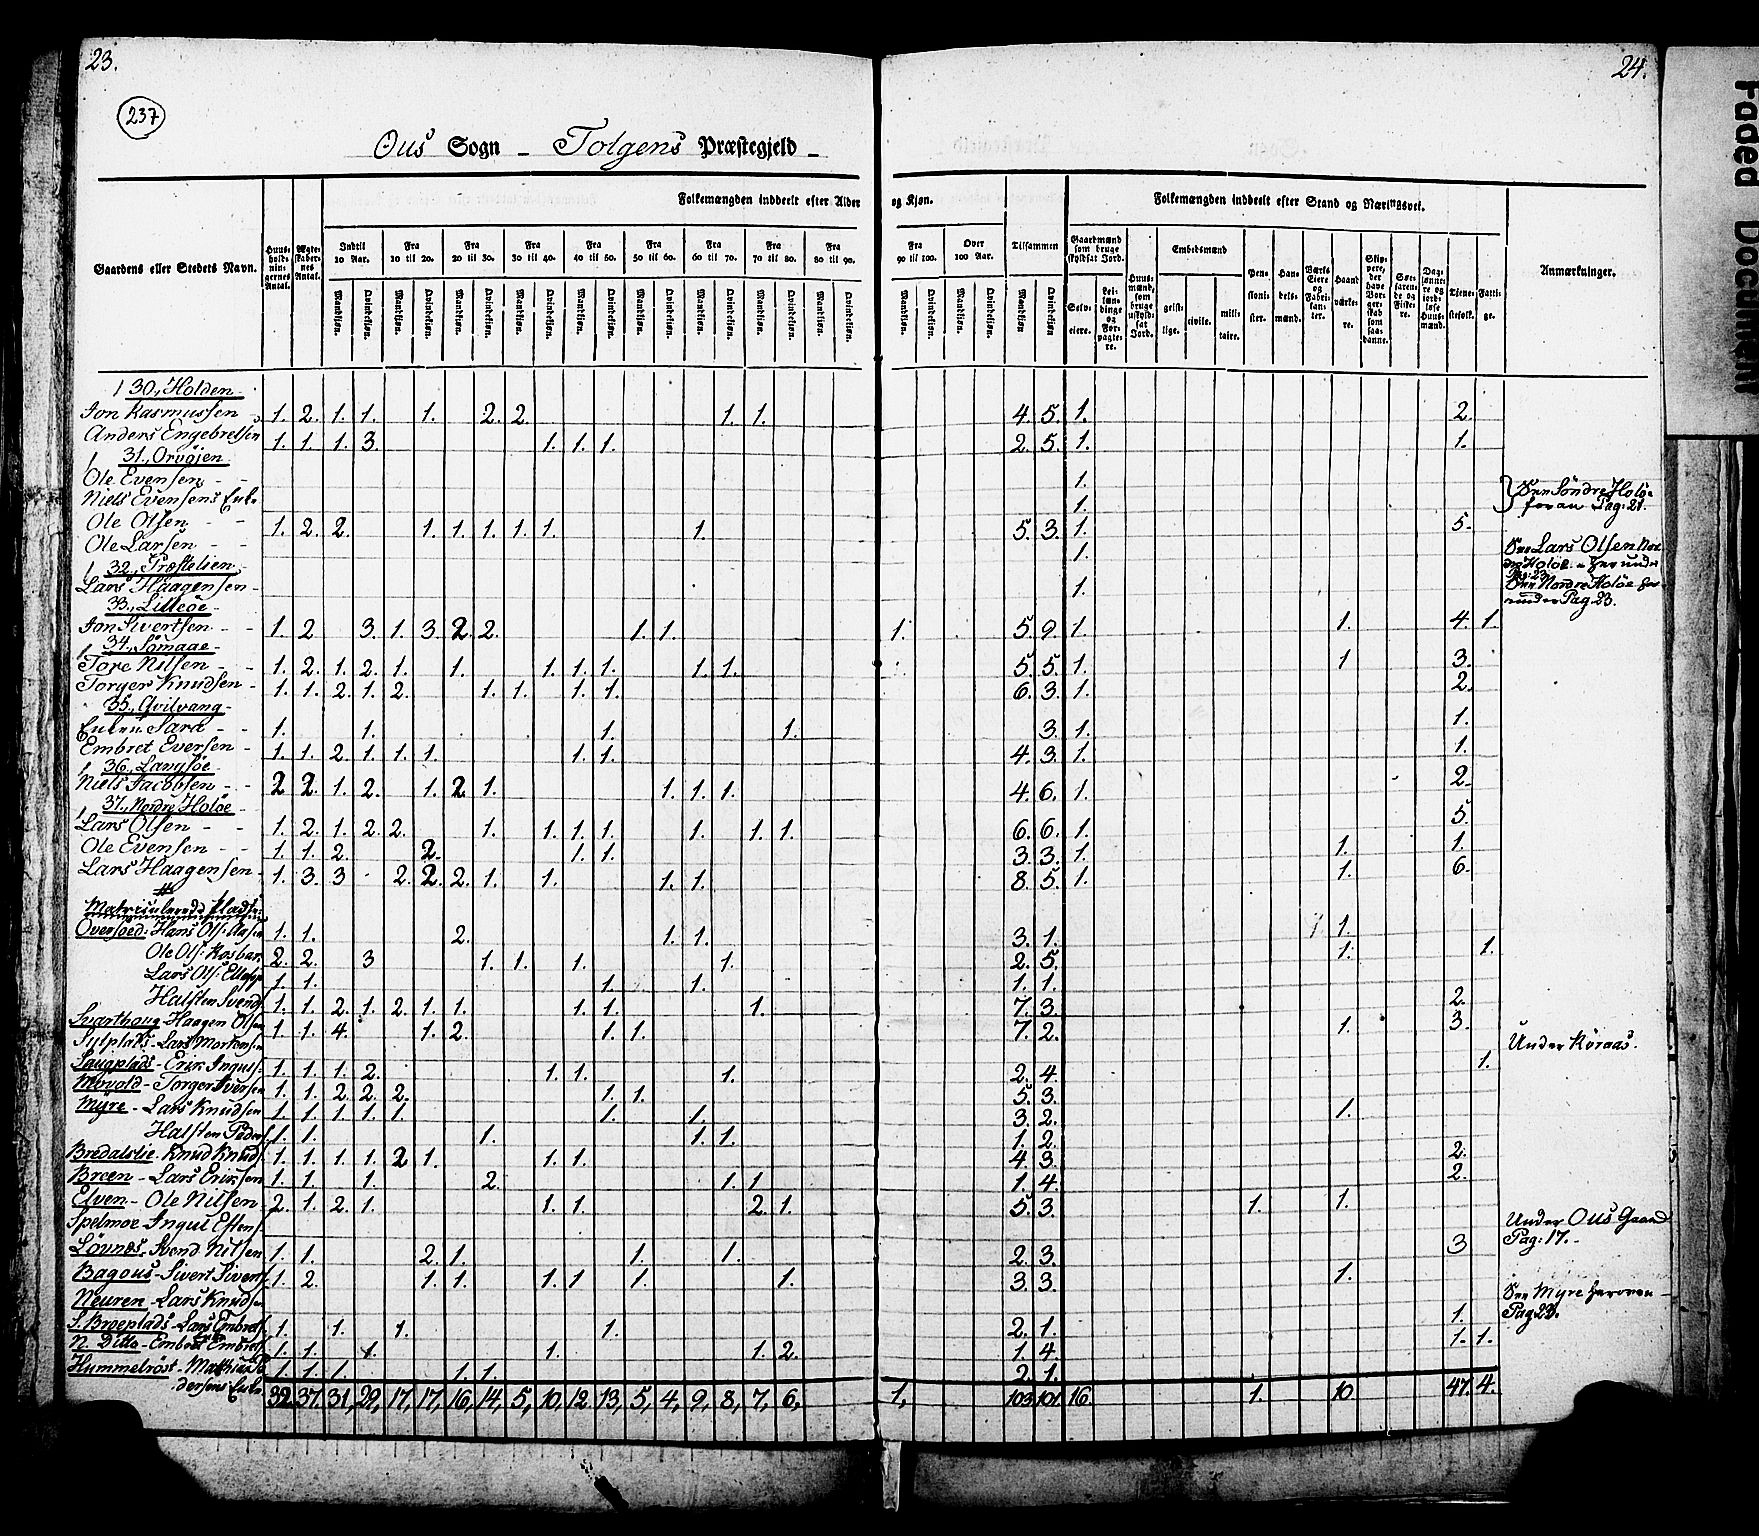 23.
24.
237
Ous Sogn - Tolgens Præstegjeld -
Folkemængden inddeelt efter Alder og Kjøn.
Folkemængden inddeelt efter Stand og Næringsvei.
Gaardens eller Stedets Navn.
Huusholdningernes Antal.
Ægteskabernes Antal.
Indtil 10 Aar.
Fra 10 til 20.
Fra 20 til 30.
Fra 30 til 40.
Fra 40 til 50.
Fra 50 til 60.
Fra 60 til 70.
Fra 70 til 80.
Fra 80 til 90.
Fra 90 til 100.
Over 100 Aar.
Tilsammen
Mandkjøn. Qvindekjøn.
Gaardmænd som bruge skyldsat Jord.
Selveiere.
Leilændinge og Forpagtere.
Huusmænd, som bruge uskyldsat Jord.
Embedsmænd
geistlige.
civile.
militaire.
Pensionister.
Handelsmænd.
Værks Eiere og Fabrikanter.
Haandværkere.
Skippere, der have Borgerskab som saadanne.
Søefarende og Fiskere.
Daglønnere og jordløse Huusmænd.
Tjenestefolk.
Fattige.
Anmærkninger.
30., Holden
Jon Rasmussen 1. 2. 1. 1. 1. 2. 2. 1. 1. 4. 5. 1. 2.
Anders Engebretsen 1. 1. 1. 3. 1. 1. 1. 2. 5. 1. 1.
31., Orvøjen
Ole Evensen 1.
Niels Evensens Enke 1. See Søndre Holöe foran Pag: 21.
Ole Olsen 1. 2. 2. 1. 1. 1. 1. 1. 1. 5. 3. 1. 5.
Ole Larsen 1. See Lars Olsen
32., Præstelien
Lars Haagensen 1. See Nordre Holöe herunder Pag 23.
33., Lilleöe
Jon Sivertsen 1. 2 3. 1. 3. 2. 2. 1. 1. 1. 5. 9. 1. 1. 4. 1.
34., Sömaae
Tore Nilsen 1. 2. 1. 2. 1. 1. 1. 1. 1. 1. 1. 5. 5. 1. 1 3.
Torger Knudsen 1. 1. 2. 1. 2. 1. 1. 1. 1. 6. 3. 1. 2.
35., Qvilvang
Enken Sara 1. 1. 1. 1. 3. 1. 1.
Embret Eversen 1. 1. 2. 1. 1. 1. 1. 1. 4. 3. 1. 1.
36., Langsöe
Niels Jacobsen 2 2. 1. 2. 1. 2. 1. 1. 1. 1. 4. 6. 1. 2.
37., Nordre Holöe
Lars Olsen 1. 2. 1. 2. 2. 1. 1. 1. 1. 1. 1. 1. 6. 6. 1. 5.
Ole Evensen 1. 1. 2. 2. 1. 1. 3. 3. 1. 1. 1.
Lars Haagensen 1. 3. 3 2. 2. 2. 1. 1. 1. 1. 8. 5. 1. 1. 6.
Matriculerede Pladse:
Oversoed: Hans Ols: 1. 1. 2. 1. 1. 3. 1. 1.
Ole Ols: 2. 2. 3 1. 1. 1. 1. 2. 5. 1. 1.
Lars Ols: 1. 1. 1. 1. 1. 1.
Halsten Svend 1. 1. 2. 1. 2. 1. 1. 1. 1. 1. 7. 3. 2.
Svarthoug - Haagen Olsen 1. 1. 4. 1. 2. 1. 1. 7. 2. 1. 3.
Sylplads - Lars Mortensen Under Röraas.
Saugplads - Erik Ingus: 1. 1. 1. 2. 1. 1. 1. 2. 4. 1.
Movold - Torger Iversen 1. 1. 2. 2. 2. 1. 1. 5. 3.
Myre - Lars Knudsen 1. 1. 1. 1. 1. 1. 1. 3. 2. 1.
Halsten Peders: 1. 1. 1. 1. 1. 1. 2.
Bredalslie - Knud Knuds: 1. 1. 1. 1. 2 1. 1. 1. 4. 3. 2.
Broen - Lars Eriksen 1. 1. 1. 2. 1. 1. 1. 4. 2.
Elven - Ole Nilsen 2. 1. 2. 1. 1. 1. 2. 1. 5. 3. 1. 1.
Spelmoe Ingul Estens: Under Ous Gaard Pag: 17.
Lövnes - Svend Nilsen 1. 1. 2. 1. 1. 1. 2. 3. 3
Bagous - Sivert Sivers: 1. 2. 1. 1. 1. 1 1. 1. 3. 3. 1.
Neuren - Lars Knudsen See Myre heroven Pag 23.
S. Broeplads - Lars Embrets: 1. 1. 1. 1. 2. 1. 1.
N. Ditto - Embret Embrets: 1. 1. 1. 1. 1. 2. 1. 4. 1. 1.
Hummelröst - Mathias Pedersens Enke 1. 1. 1. 1. 1. 2. 1.
32. 37. 31, 29, 17, 17, 16, 14, 5, 10, 12. 13, 5, 4, 9, 8, 7, 6, 1, 103 101. 16. 1. 10 47. 4.
Faded Document